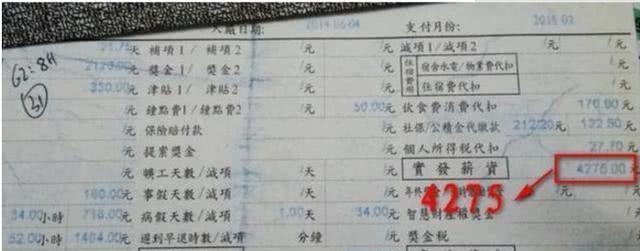 入廠日期: 2014-06-04 支付月份:
21.75 天 補項1/補項2 /元 減項1/減項2 /元 /元
G2:8H
獎金1/獎金2 /元 住宿費用 宿舍水電/物業費代扣 /元
21
350.00 /元 津貼1/津貼2 /元 住宿費代扣 /元
/元 鐘點費1/鐘點費2 50.00 /元 飲食費消費代扣 170.60 元
/元 保險賠付款 /元 社保/公積金代繳款 212/20 元 132.50 /元
/元 提案獎金 /元 個人所得税代扣 27.70 元
/元 曠工天數/減項 /天 /元 實發薪資 4275.00 元
160.00 /元 事假天數/減項 /天 /元 /元
4275
34.00 小時 718.00 /元 病假天數/減項 1.00 /天 34.00 /元 智慧財產權獎金 /元
52.00 小時 1464.00 /元 遲到早退時數/減項 分鐘 /元 獎金税 /元